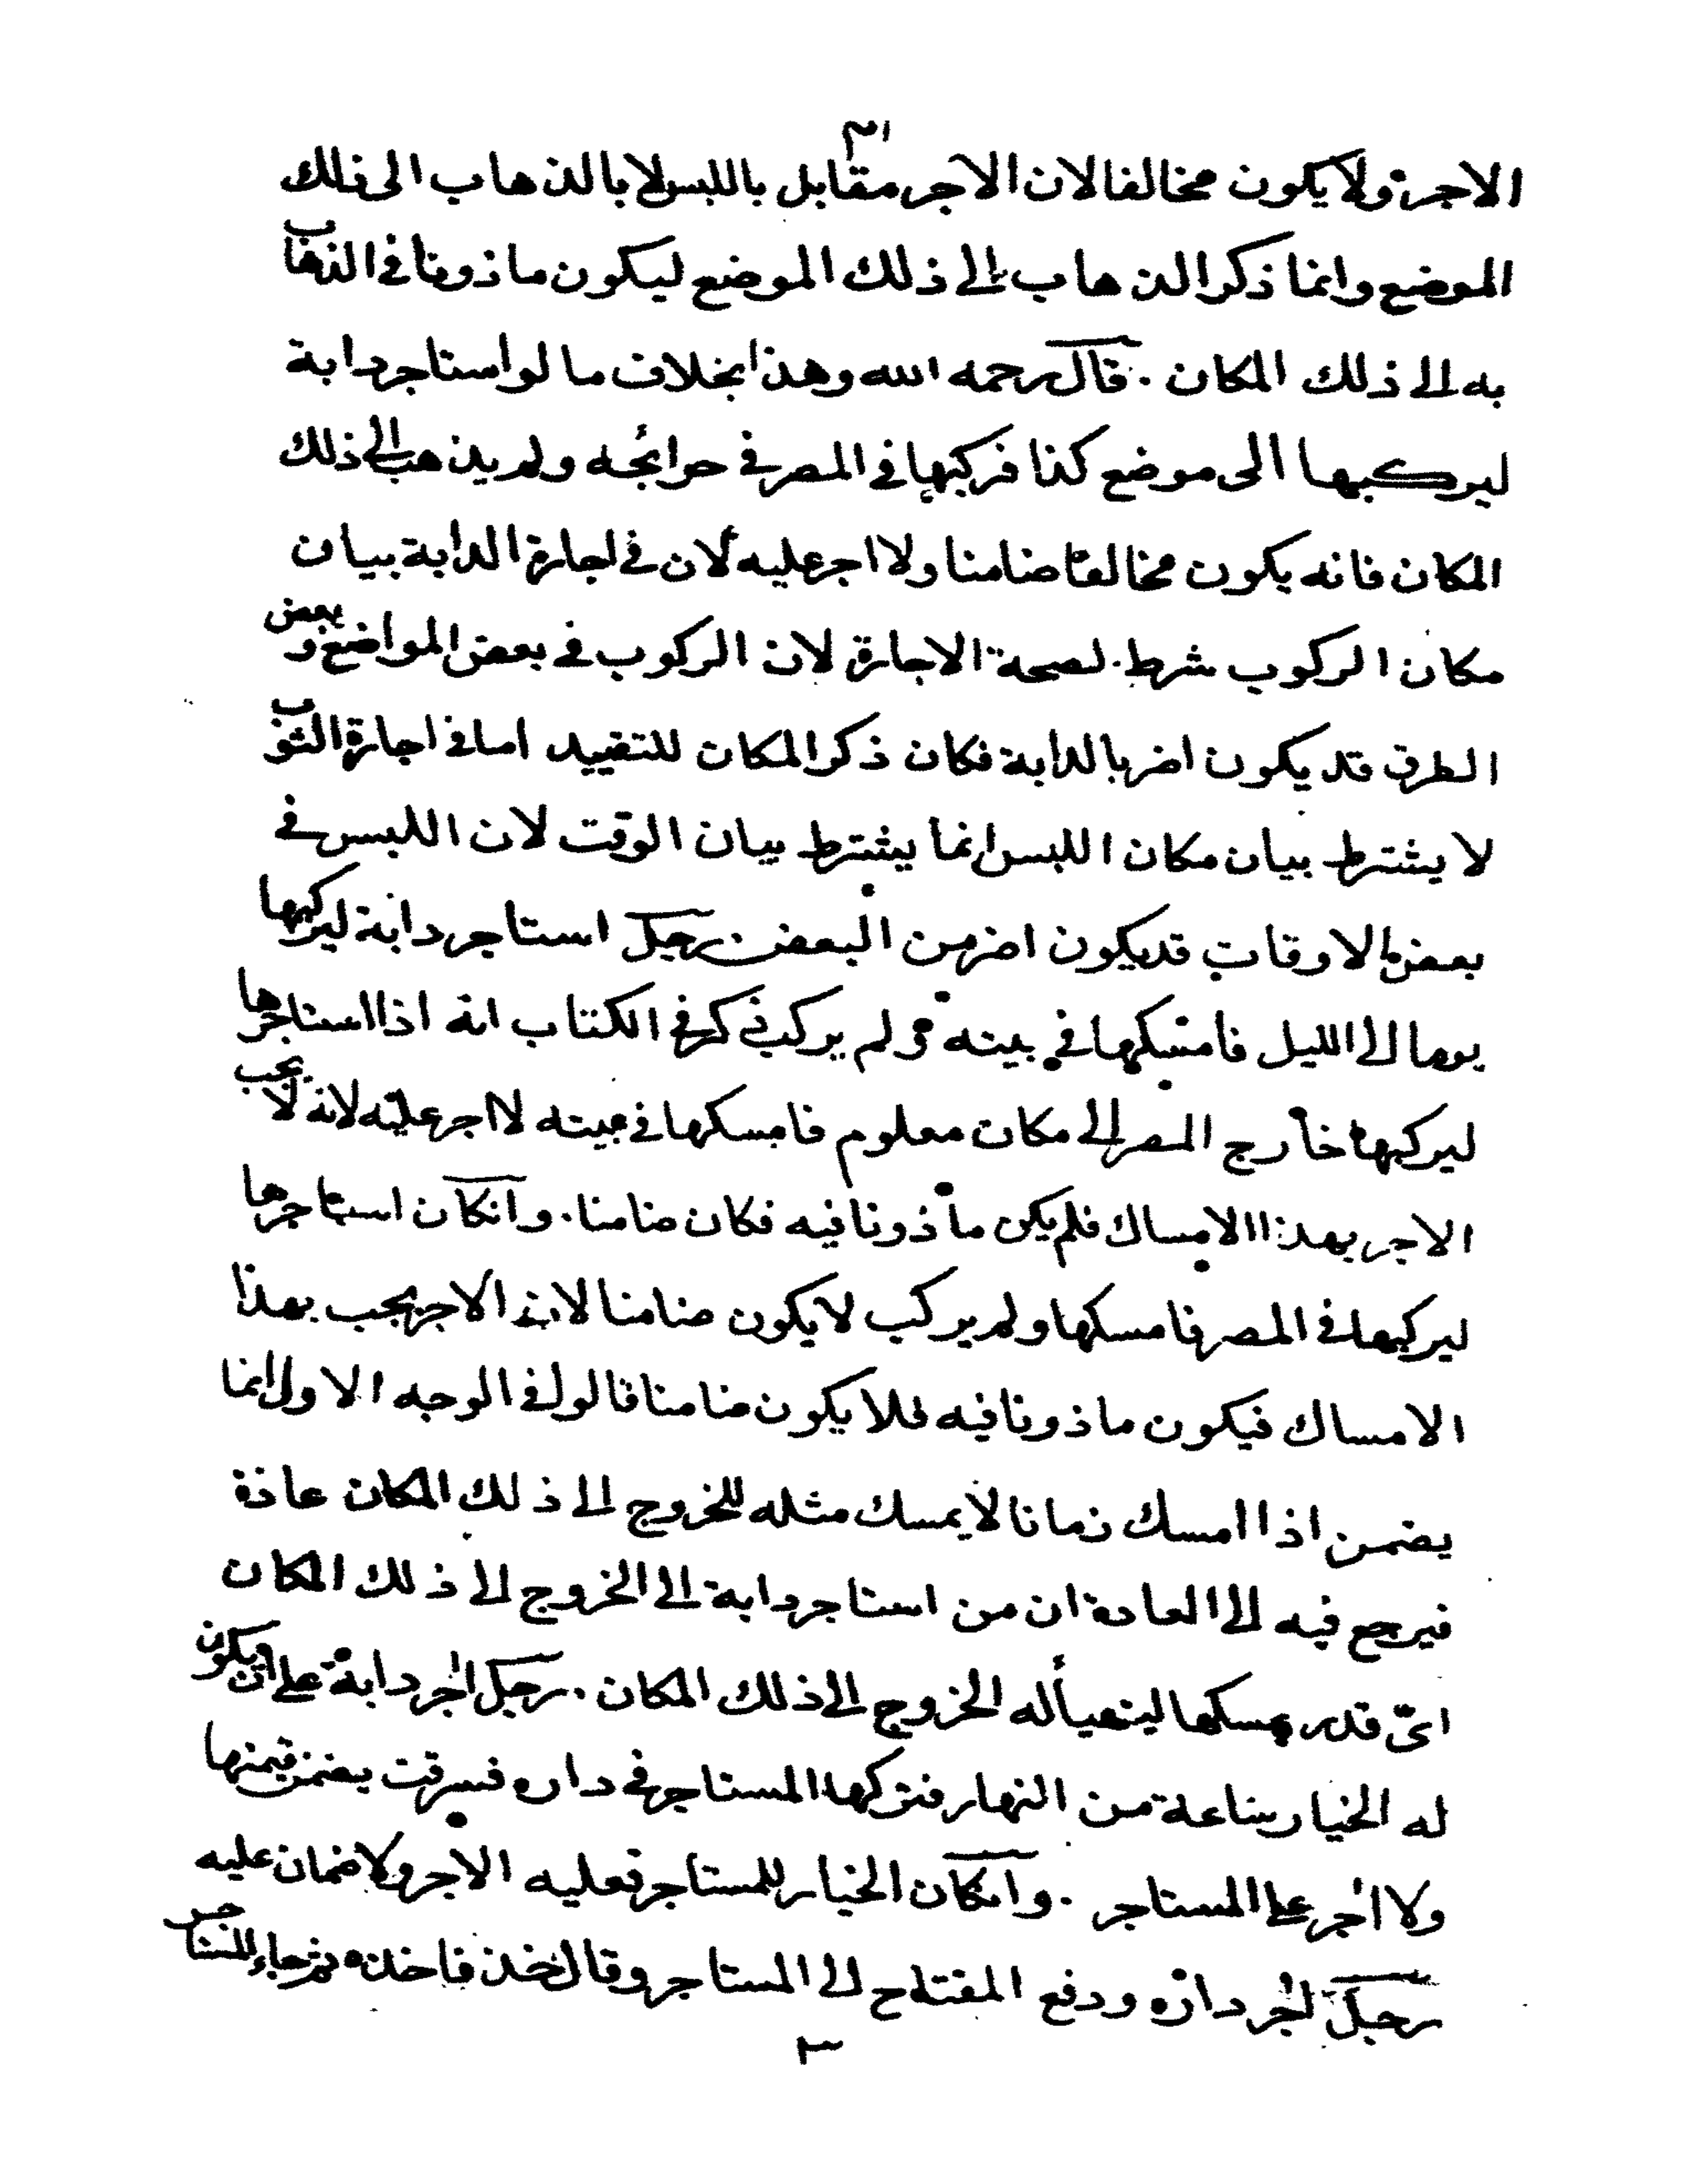 ٣١
الاجرة ولا يكون مخالفا لان الاجر مقابل باللبس لا بالذهاب الى ذلك
الموضع وانما ذكر الذهاب الى ذلك الموضع ليكون ماذونا فى الذهاب
به الى ذلك المكان . قال رحمه الله وهذا بخلاف ما لو استاجر دابة
ليركبها الى موضع كذا فركبها فى المصر فى حوائجه ولم يذهب الى ذلك
المكان فانه يكون مخالفا ضامنا ولا اجر عليه لان فى اجارة الدابة بيان
مكان الركوب شرط لصحة الاجارة لان الركوب فى بعض المواضع وبعض
الطرق قد يكون اضر بالدابة فكان ذكر المكان للتقييد اما فى اجارة الثوب
لا يشترط بيان مكان اللبس انما يشترط بيان الوقت لان اللبس فى
بعض الاوقات قد يكون اضر من البعض . رجل استاجر دابة ليركبها
يوما الى الليل فامسكها فى بيته ولم يركب ذكر فى الكتاب انه اذا استاجرها
ليركبها خارج المصر الى مكان معلوم فامسكها فى بيته لا اجر عليه لانه لا يجب
الاجر بهذا الامساك فلم يكن ماذونا فيه فكان ضامنا . وان كان استاجرها
ليركبها فى المصر فامسكها ولم يركب لا يكون ضامنا لان الاجر يجب بهذا
الامساك فيكون ماذونا فيه فلا يكون ضامنا قالوا فى الوجه الاول انما
يضمن اذا امسك زمانا لا يمسك مثله للخروج الى ذلك المكان عادة
فيرجع فيه الى العادة ان من استاجر دابة الى الخروج الى ذلك المكان
اىّ قدر يمسكها ليتهيأ له الخروج الى ذلك المكان . رجل اجر دابة على ان يكون
له الخيار ساعة من النهار فتركها المستاجر فى داره فسرقت يضمن قيمتها
ولا اجر على المستاجر . وان كان الخيار للمستاجر فعليه الاجر ولا ضمان عليه
رجل اجر داره ودفع المفتاح الى المستاجر وقال خذ فاخذه ثم جاء المستاجر
٣